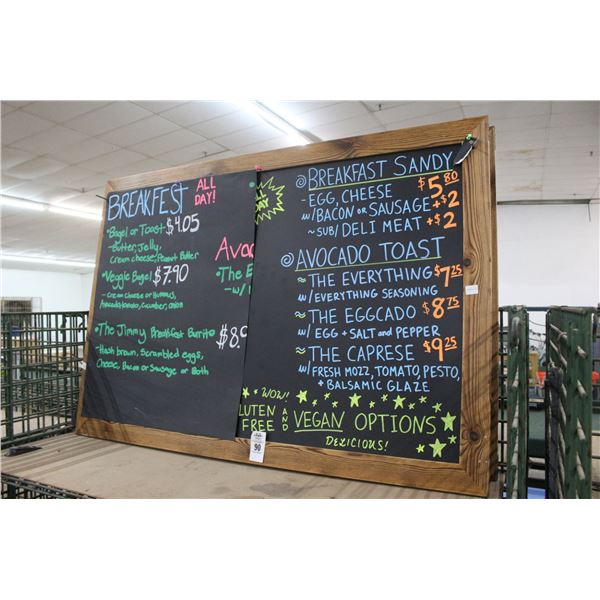 BREAKFEST ALL DAY!
Bagel or Toast $4.05
- Butter, Jelly,
Cream cheese, Peanut Butter
Veggie Bagel $7.90
- Cream Cheese or Hummus,
Avocado, tomato, cucumber, onion
The Jimmy Breakfast Burrito
Hash brown, Scrambled eggs,
Cheese, Bacon or Sausage or Both
$8.9
Avoc
• The E
- w/
DAY
BREAKFAST SANDY
- EGG, CHEESE $5.80
w/BACON OR SAUSAGE +$2
~ SUB/DELI MEAT +$2
AVOCADO TOAST
≈ THE EVERYTHING $7.25
w/EVERYTHING SEASONING
≈ THE EGGCADO $8.75
w/ EGG + SALT AND PEPPER
≈ THE CAPRESE $9.25
w/FRESH MOZZ, TOMATO, PESTO,
+ BALSAMIC GLAZE
WOW!
GLUTEN FREE AND VEGAN OPTIONS
DELICIOUS!
90